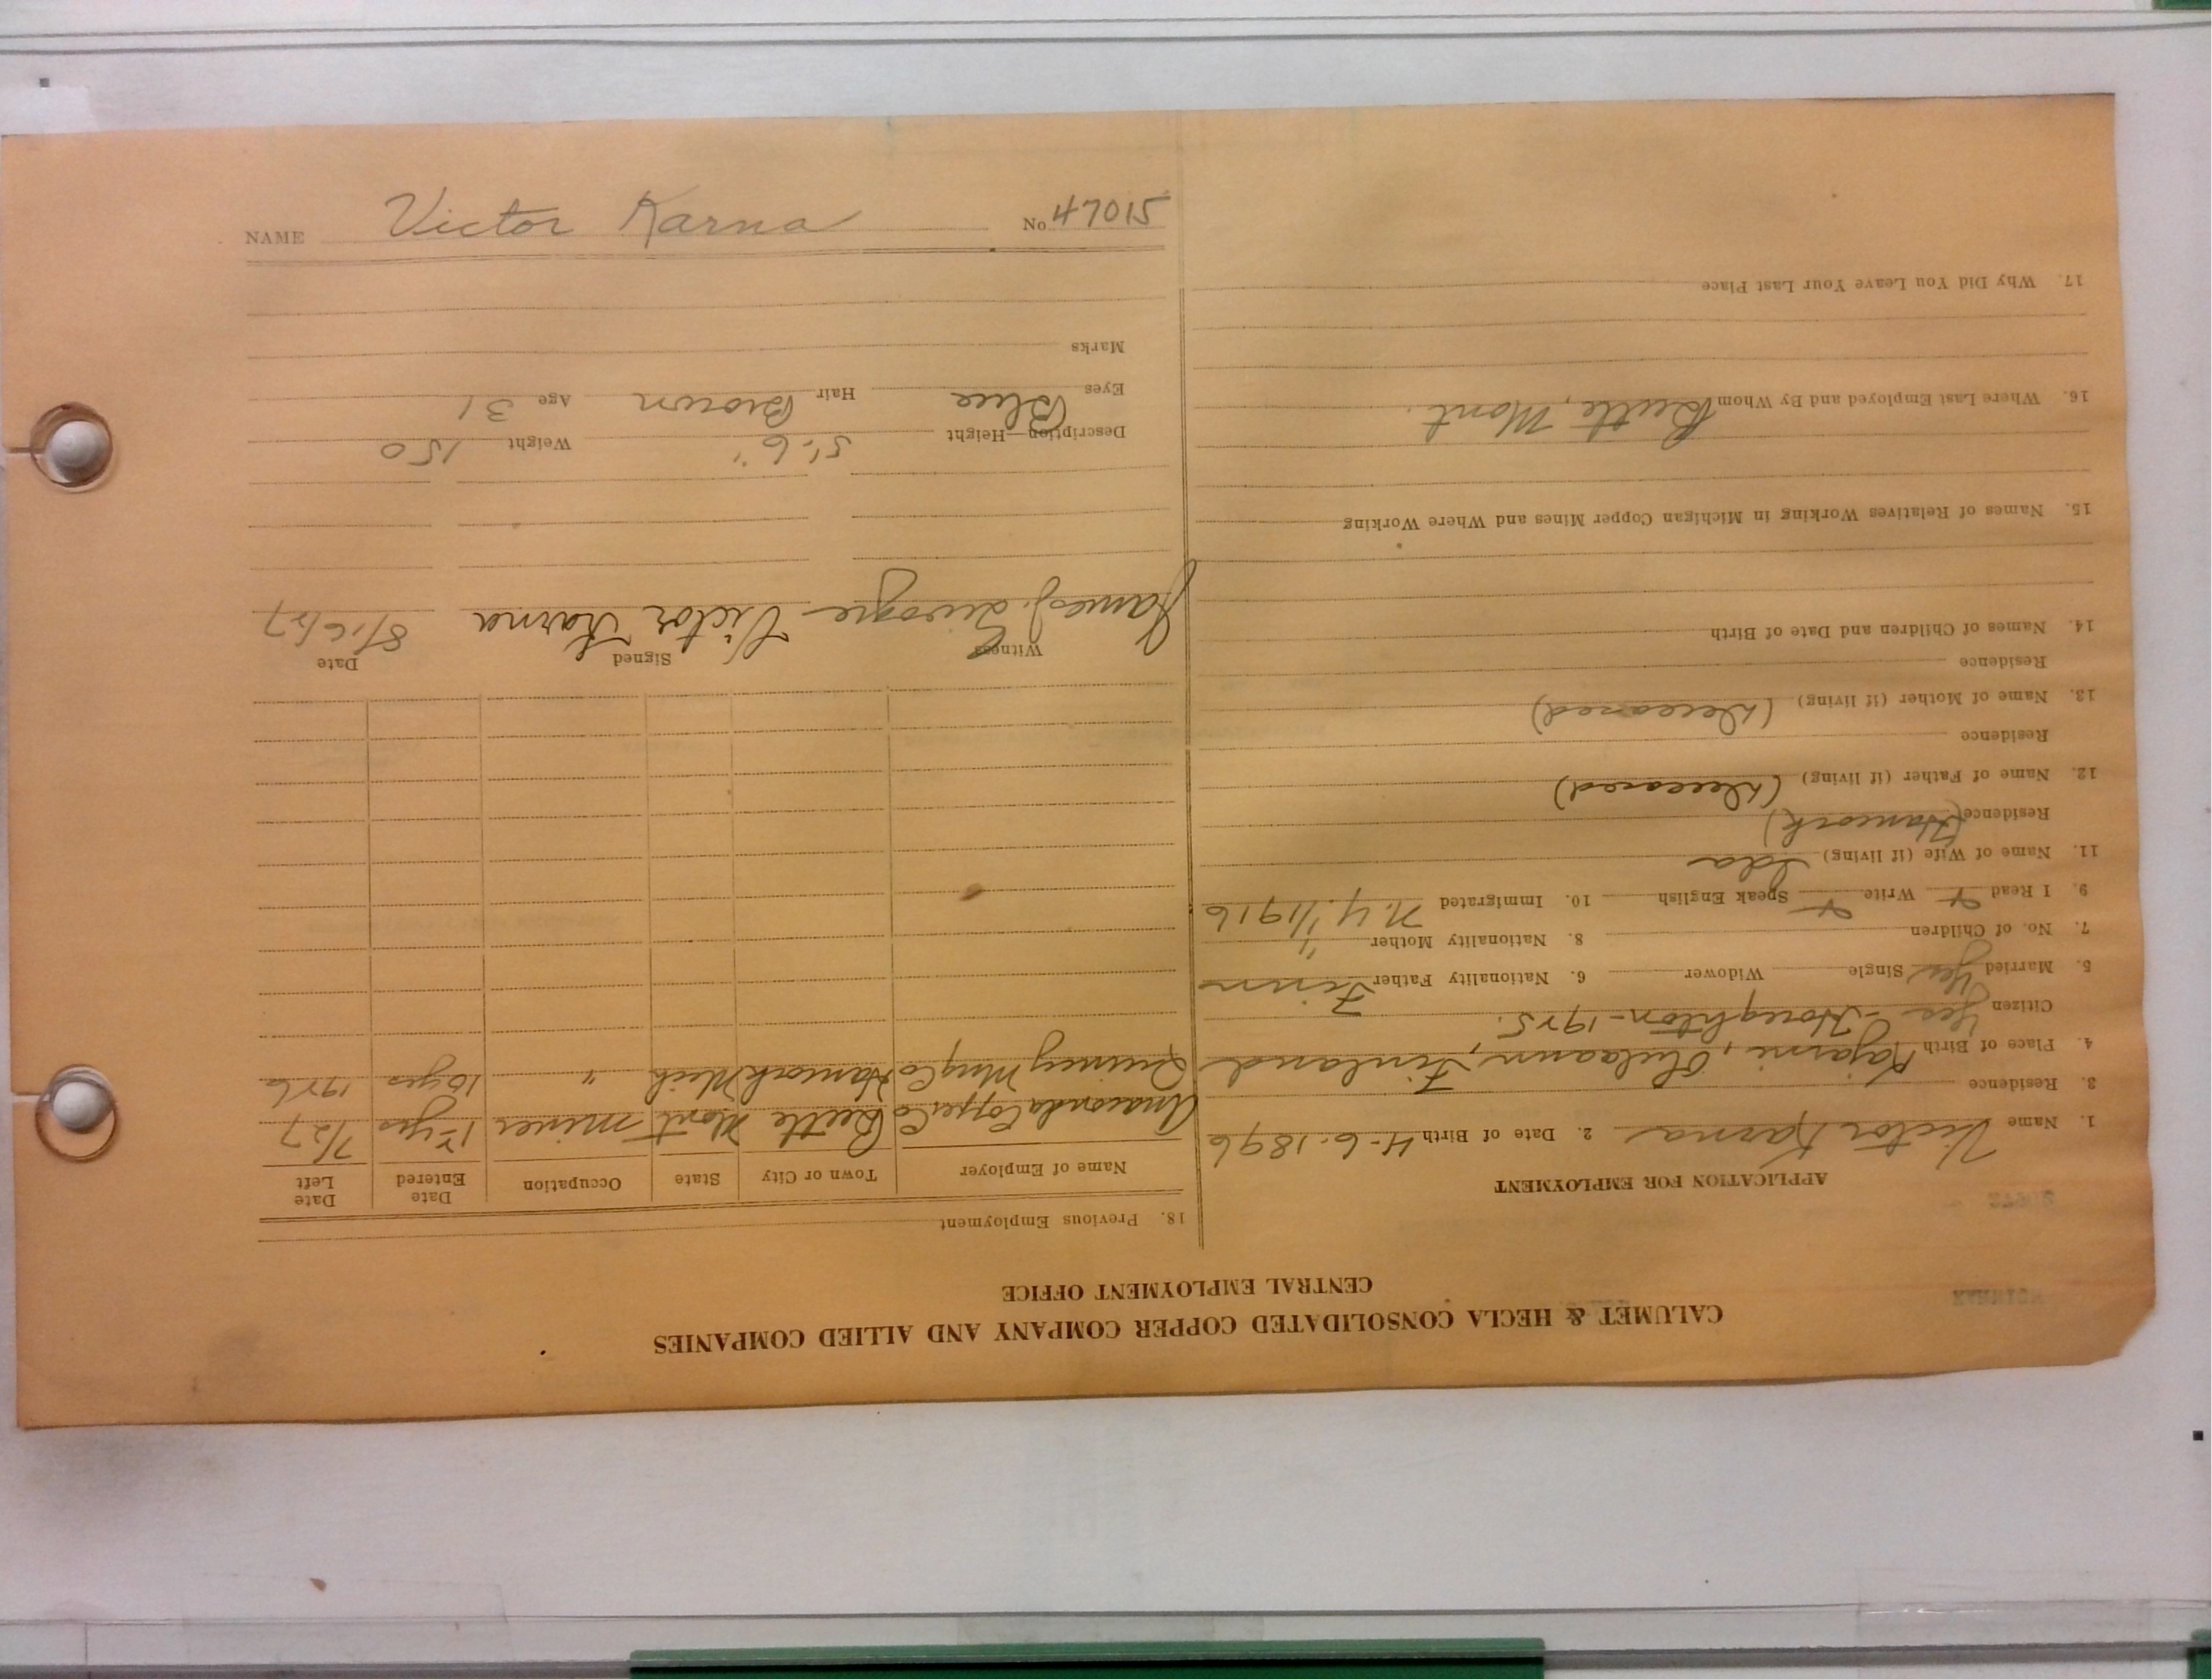 NAME Victor Karna No 47015
CALUMET & HECLA CONSOLIDATED COPPER COMPANY AND ALLIED COMPANIES
CENTRAL EMPLOYMENT OFFICE
APPLICATION FOR EMPLOYMENT
1. Name Victor Karna 2. Date of Birth 4-6-1896
3. Residence
4. Place of Birth Kajarni, Finland
Citizen Yes - Houghton - 1925.
5. Married Yes Single Widower 6. Nationality Father Finn
7. No. of Children 8. Nationality Mother "
9. I Read Write Speak English 10. Immigrated N.Y. 1916
11. Name of Wife (if living) Ida
Residence (Hancock)
12. Name of Father (if living) (Deceased)
Residence
13. Name of Mother (if living) (Deceased)
Residence
14. Names of Children and Date of Birth
15. Names of Relatives Working in Michigan Copper Mines and Where Working
16. Where Last Employed and By Whom Butte, Mont.
17. Why Did You Leave Your Last Place
18. Previous Employment
Name of Employer Town or City State Occupation Date Entered Date Left
Anaconda Copper Co Butte Mont miner 1 yrs 7/27
Quincy Mng Co Hancock Mich " 10 yrs 1926
Witness Signed Date
James J. Victor Karna 8/16/27
Description—Height 5'-6" Weight 150
Eyes Blue Hair Brown Age 31
Marks